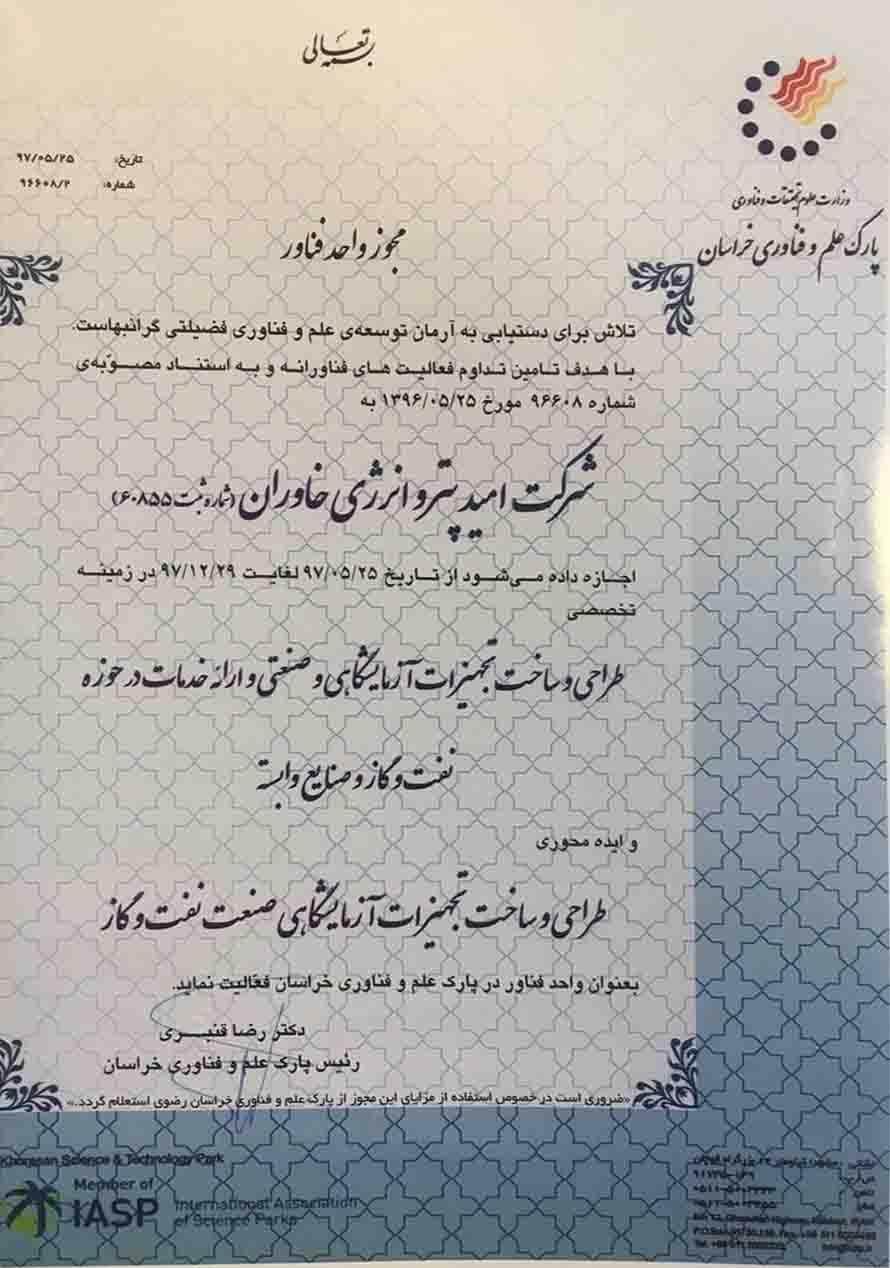 بسمه تعالی
وزارت علوم تحقیقات و فناوری
پارک علم و فناوری خراسان
تاریخ: ۹۷/۰۵/۲۵
شماره: ۹۶۶۰۸/۲
مجوز واحد فناور
تلاش برای دستیابی به آرمان توسعه‌ی علم و فناوری فضیلتی گرانبهاست.
با هدف تامین تداوم فعالیت های فناورانه و به استناد مصوّبه‌ی
شماره ۹۶۶۰۸ مورخ ۱۳۹۶/۰۵/۲۵ به
شرکت امید پترو انرژی خاوران (شماره ثبت ۶۰۸۵۵)
اجازه داده می‌شود از تاریخ ۹۷/۰۵/۲۵ لغایت ۹۷/۱۲/۲۹ در زمینه
تخصصی
طراحی و ساخت تجهیزات آزمایشگاهی و صنعتی و ارائه خدمات در حوزه
نفت و گاز و صنایع وابسته
و ایده محوری
طراحی و ساخت تجهیزات آزمایشگاهی صنعت نفت و گاز
بعنوان واحد فناور در پارک علم و فناوری خراسان فعّالیت نماید.
دکتر رضا قنبری
رئیس پارک علم و فناوری خراسان
«ضروری است در خصوص استفاده از مزایای این مجوز از پارک علم و فناوری خراسان رضوی استعلام گردد.»
Khorasan Science & Technology Park
Member of
IASP
International Association
of Science Parks